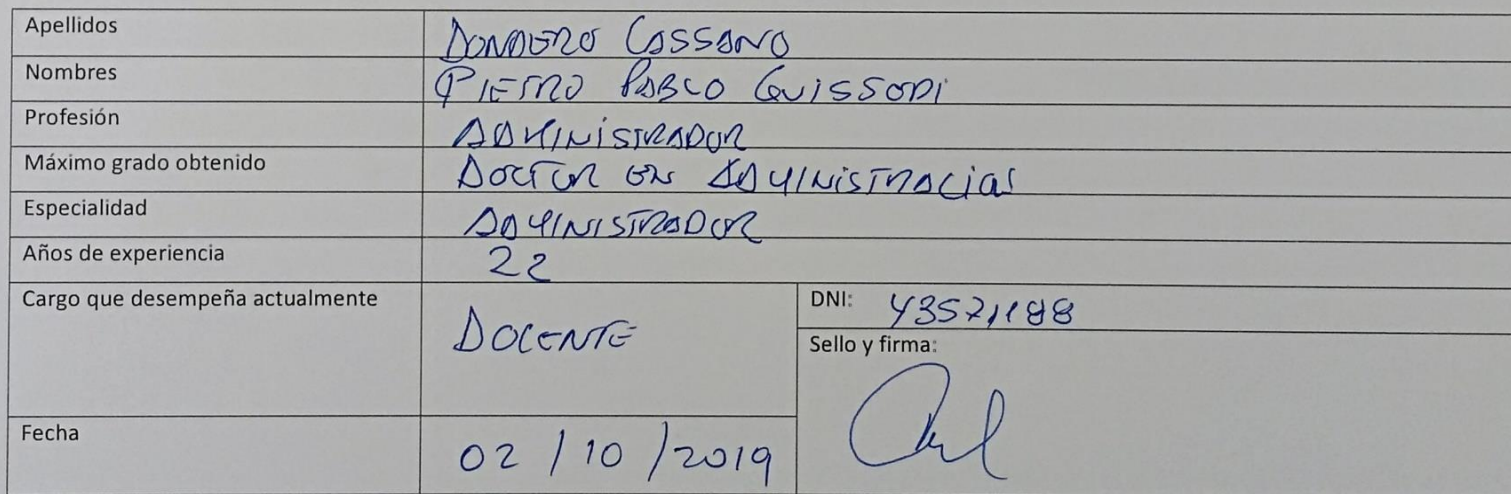 Apellidos DONDERO CASSANO
Nombres PIETRO PABLO GUISSEPPI
Profesión ADMINISTRADOR
Máximo grado obtenido DOCTOR EN ADMINISTRACIÓN
Especialidad ADMINISTRADOR
Años de experiencia 22
Cargo que desempeña actualmente DOCENTE
DNI: 43571188
Sello y firma:
Fecha 02 / 10 / 2019